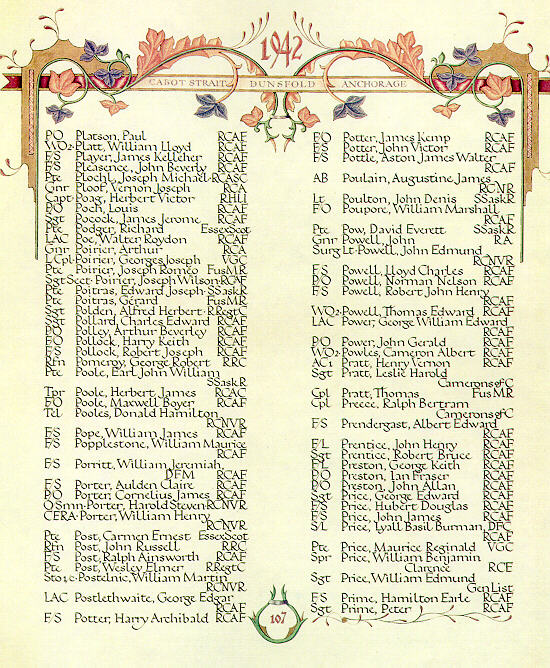 1942
CABOT STRAIT DUNSFOLD ANCHORAGE
P/O Platson, Paul RCAF
WO2 Platt, William Lloyd RCAF
F/S Player, James Kelleher RCAF
F/S Pleasence, John Beverly RCAF
Pte Plochl, Joseph Michael RCASC
Gnr Ploof, Vernon Joseph RCA
Capt Poag, Herbert Victor RHLI
P/O Poch, Louis RCAF
Sgt Pocock, James Jerome RCAF
Pte Podger, Richard EssexScot
LAC Poe, Walter Roydon RCAF
Gnr Poirier, Arthur RCA
L/Cpl Poirier, Georges Joseph VGC
Pte Poirier, Joseph Romeo FusMR
SgtSect Poirier, Joseph Wilson RCAF
Pte Poitras, Edward Joseph SSaskR
Pte Poitras, Gérard FusMR
Sgt Polden, Alfred Herbert RRegtC
Sgt Pollard, Charles Edward RCAF
P/O Polley, Arthur Beverley RCAF
F/O Pollock, Harry Keith RCAF
F/S Pollock, Robert Joseph RCAF
Rfn Pomeroy, George Robert RRC
Pte Poole, Earl John William
SSaskR
Tpr Poole, Herbert James RCAC
F/O Poole, Maxwell Boyer RCAF
Tel Pooles, Donald Hamilton
RCNVR
F/S Pope, William James RCAF
F/S Popplestone, William Maurice
RCAF
F/S Porritt, William Jeremiah,
DFM RCAF
F/S Porter, Aulden Claire RCAF
P/O Porter, Cornelius James RCAF
O Smn Porter, Harold Steven RCNVR
CERA Porter, William Henry
RCNVR
Pte Post, Carmen Ernest EssexScot
Rfn Post, John Russell RRC
F/S Post, Ralph Ainsworth RCAF
Pte Post, Wesley Elmer RRegtC
Sto1c Postelnic, William Martin
RCNVR
LAC Postlethwaite, George Edgar
RCAF
F/S Potter, Harry Archibald RCAF
P/O Potter, James Kemp RCAF
F/S Potter, John Victor RCAF
F/S Pottle, Aston James Walter
RCAF
AB Poulain, Augustine James
RCNR
Lt Poulton, John Denis SSaskR
F/O Poupore, William Marshall
RCAF
Pte Pow, David Everett SSaskR
Gnr Powell, John RA
Surg Lt Powell, John Edmund
RCNVR
F/S Powell, Lloyd Charles RCAF
P/O Powell, Norman Nelson RCAF
F/S Powell, Robert John Henry
RCAF
WO2 Powell, Thomas Edward RCAF
LAC Power, George William Edward
RCAF
P/O Power, John Gerald RCAF
WO2 Powles, Cameron Albert RCAF
AC1 Pratt, Henry Vernon RCAF
Sgt Pratt, Leslie Harold
CameronsofC
Cpl Pratt, Thomas FusMR
Cpl Preece, Ralph Bertram
CameronsofC
F/S Prendergast, Albert Edward
RCAF
F/L Prentice, John Henry RCAF
Sgt Prentice, Robert Bruce RCAF
F/L Preston, George Keith RCAF
P/O Preston, Ian Fraser RCAF
P/O Preston, John Allan RCAF
Sgt Price, George Edward RCAF
F/S Price, Hubert Douglas RCAF
F/S Price, John James RCAF
S/L Price, Lyall Basil Burman, DFC
RCAF
Pte Price, Maurice Reginald VGC
Spr Price, William Benjamin
Clarence RCE
Sgt Price, William Edmund
GenList
F/S Prime, Hamilton Earle RCAF
Sgt Prime, Peter RCAF
107